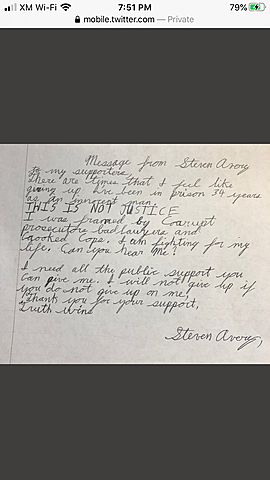 XM Wi-Fi
7:51 PM
79%
mobile.twitter.com — Private
Message from Steven Avery
to my supporters,
there are times that I feel like
giving up I've been in prison 34 years
as an innocent man.
THIS IS NOT JUSTICE
I was framed by Coarrupt
prosecutors bad lawyers and
crooked Cops. I am fighting for my
life. Can you hear me?
I need all the public support you
can give me. I will not give up if
you do not give up on me!
Thank you for your support,
Truth Wins
Steven Avery,